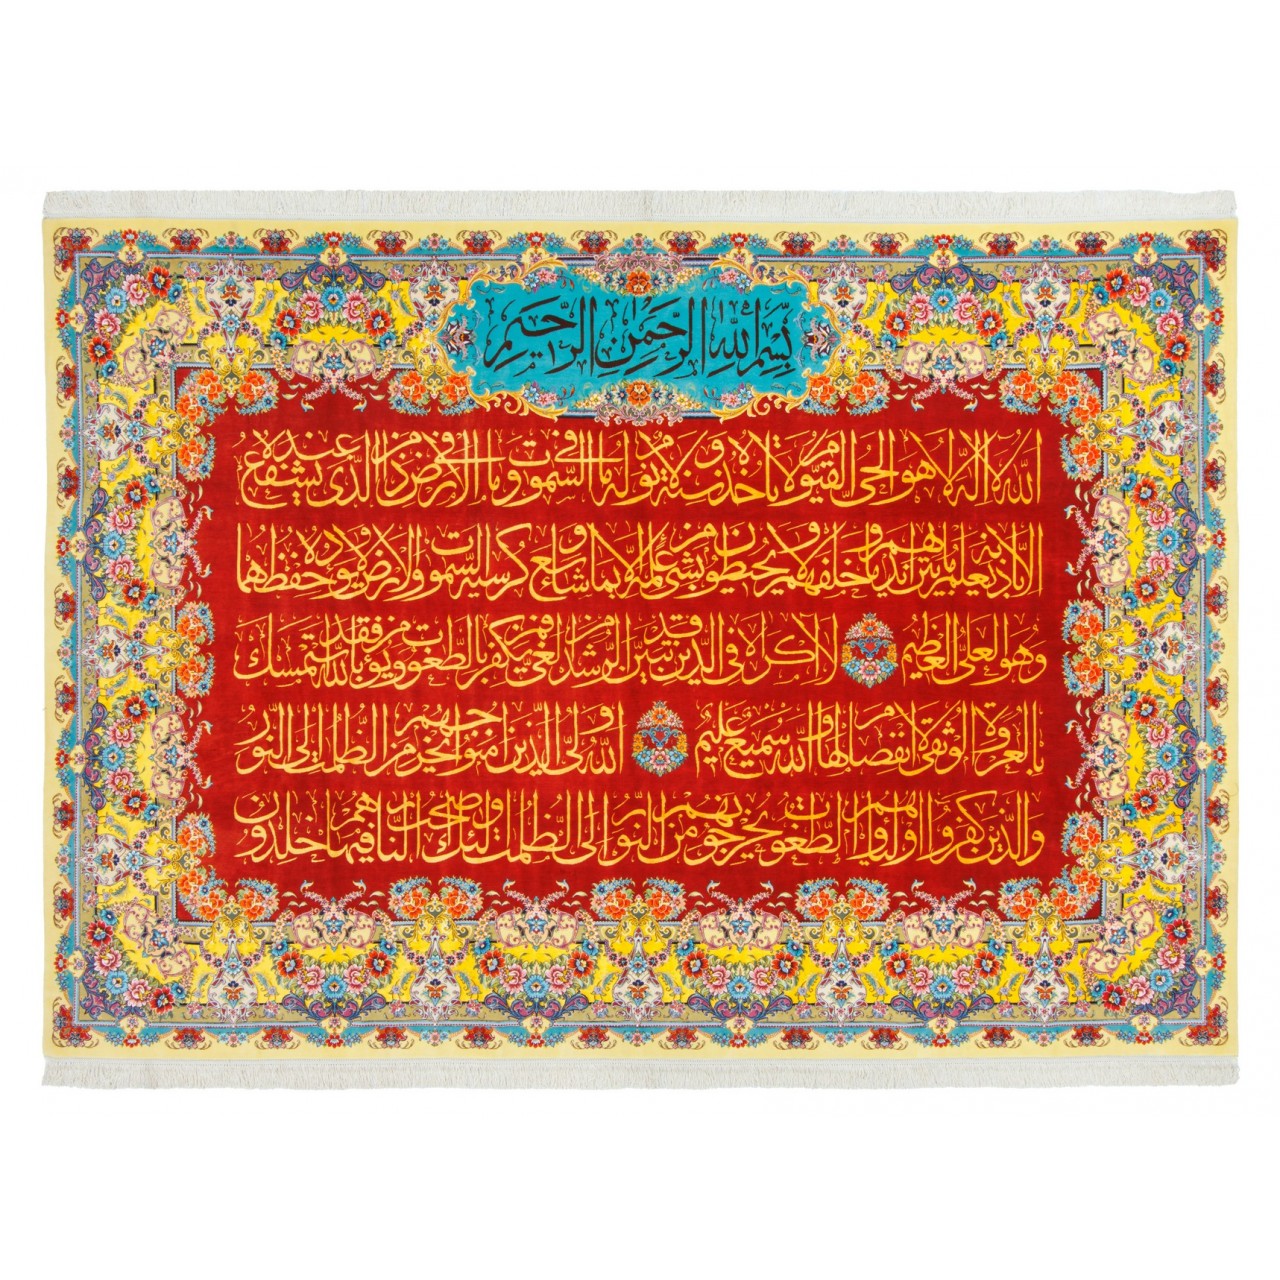 بسم الله الرحمن الرحیم
الله لا اله الا هو الحی القیوم لا تاخذه سنة ولا نوم له ما فی السموت وما فی الارض من ذا الذی یشفع عنده
الا باذنه یعلم ما بین ایدیهم وما خلفهم ولا یحیطون بشیء من علمه الا بما شاء وسع کرسیه السموت والارض ولا یوده حفظهما
وهو العلی العظیم لا اکراه فی الدین قد تبین الرشد من الغی فمن یکفر بالطغوت ویومن بالله فقد استمسک
بالعروة الوثقی لا انفصام لها والله سمیع علیم الله ولی الذین امنوا یخرجهم من الظلمت الی النور
والذین کفروا اولیاوهم الطغوت یخرجونهم من النور الی الظلمت اولئک اصحاب النار هم فیها خلدون